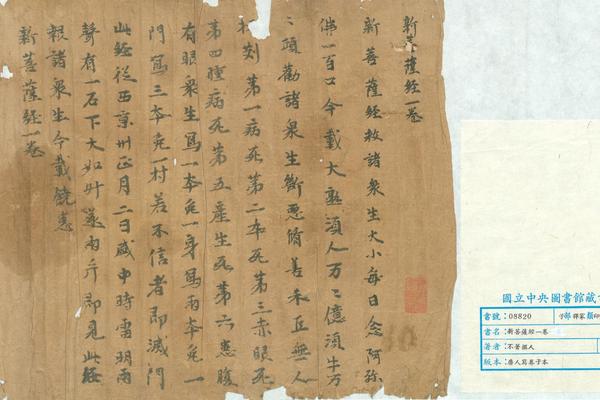 新菩薩經一卷
新菩薩經救諸衆生大小每日念阿弥
佛一百口今載大熟湏人万〻億湏牛万
〻頭勸諸衆生断悪脩善禾豆無人
刈第一病死第二卒死第三赤眼死
第四腫病死第五産生死第六患腹
有眼衆生寫一本免一身寫兩本免一
門寫三本免一村若不信者即滅門
此經從西京州正月二日盛中時雷明雨
聲有一石下大如卅遂兩斤即見此經
報諸衆生今載饒患
新菩薩經一卷
國立中央圖書館藏
書號：08820 子部釋家類
書名：新菩薩經一卷
著者：不著撰人
版本：唐人寫卷子本